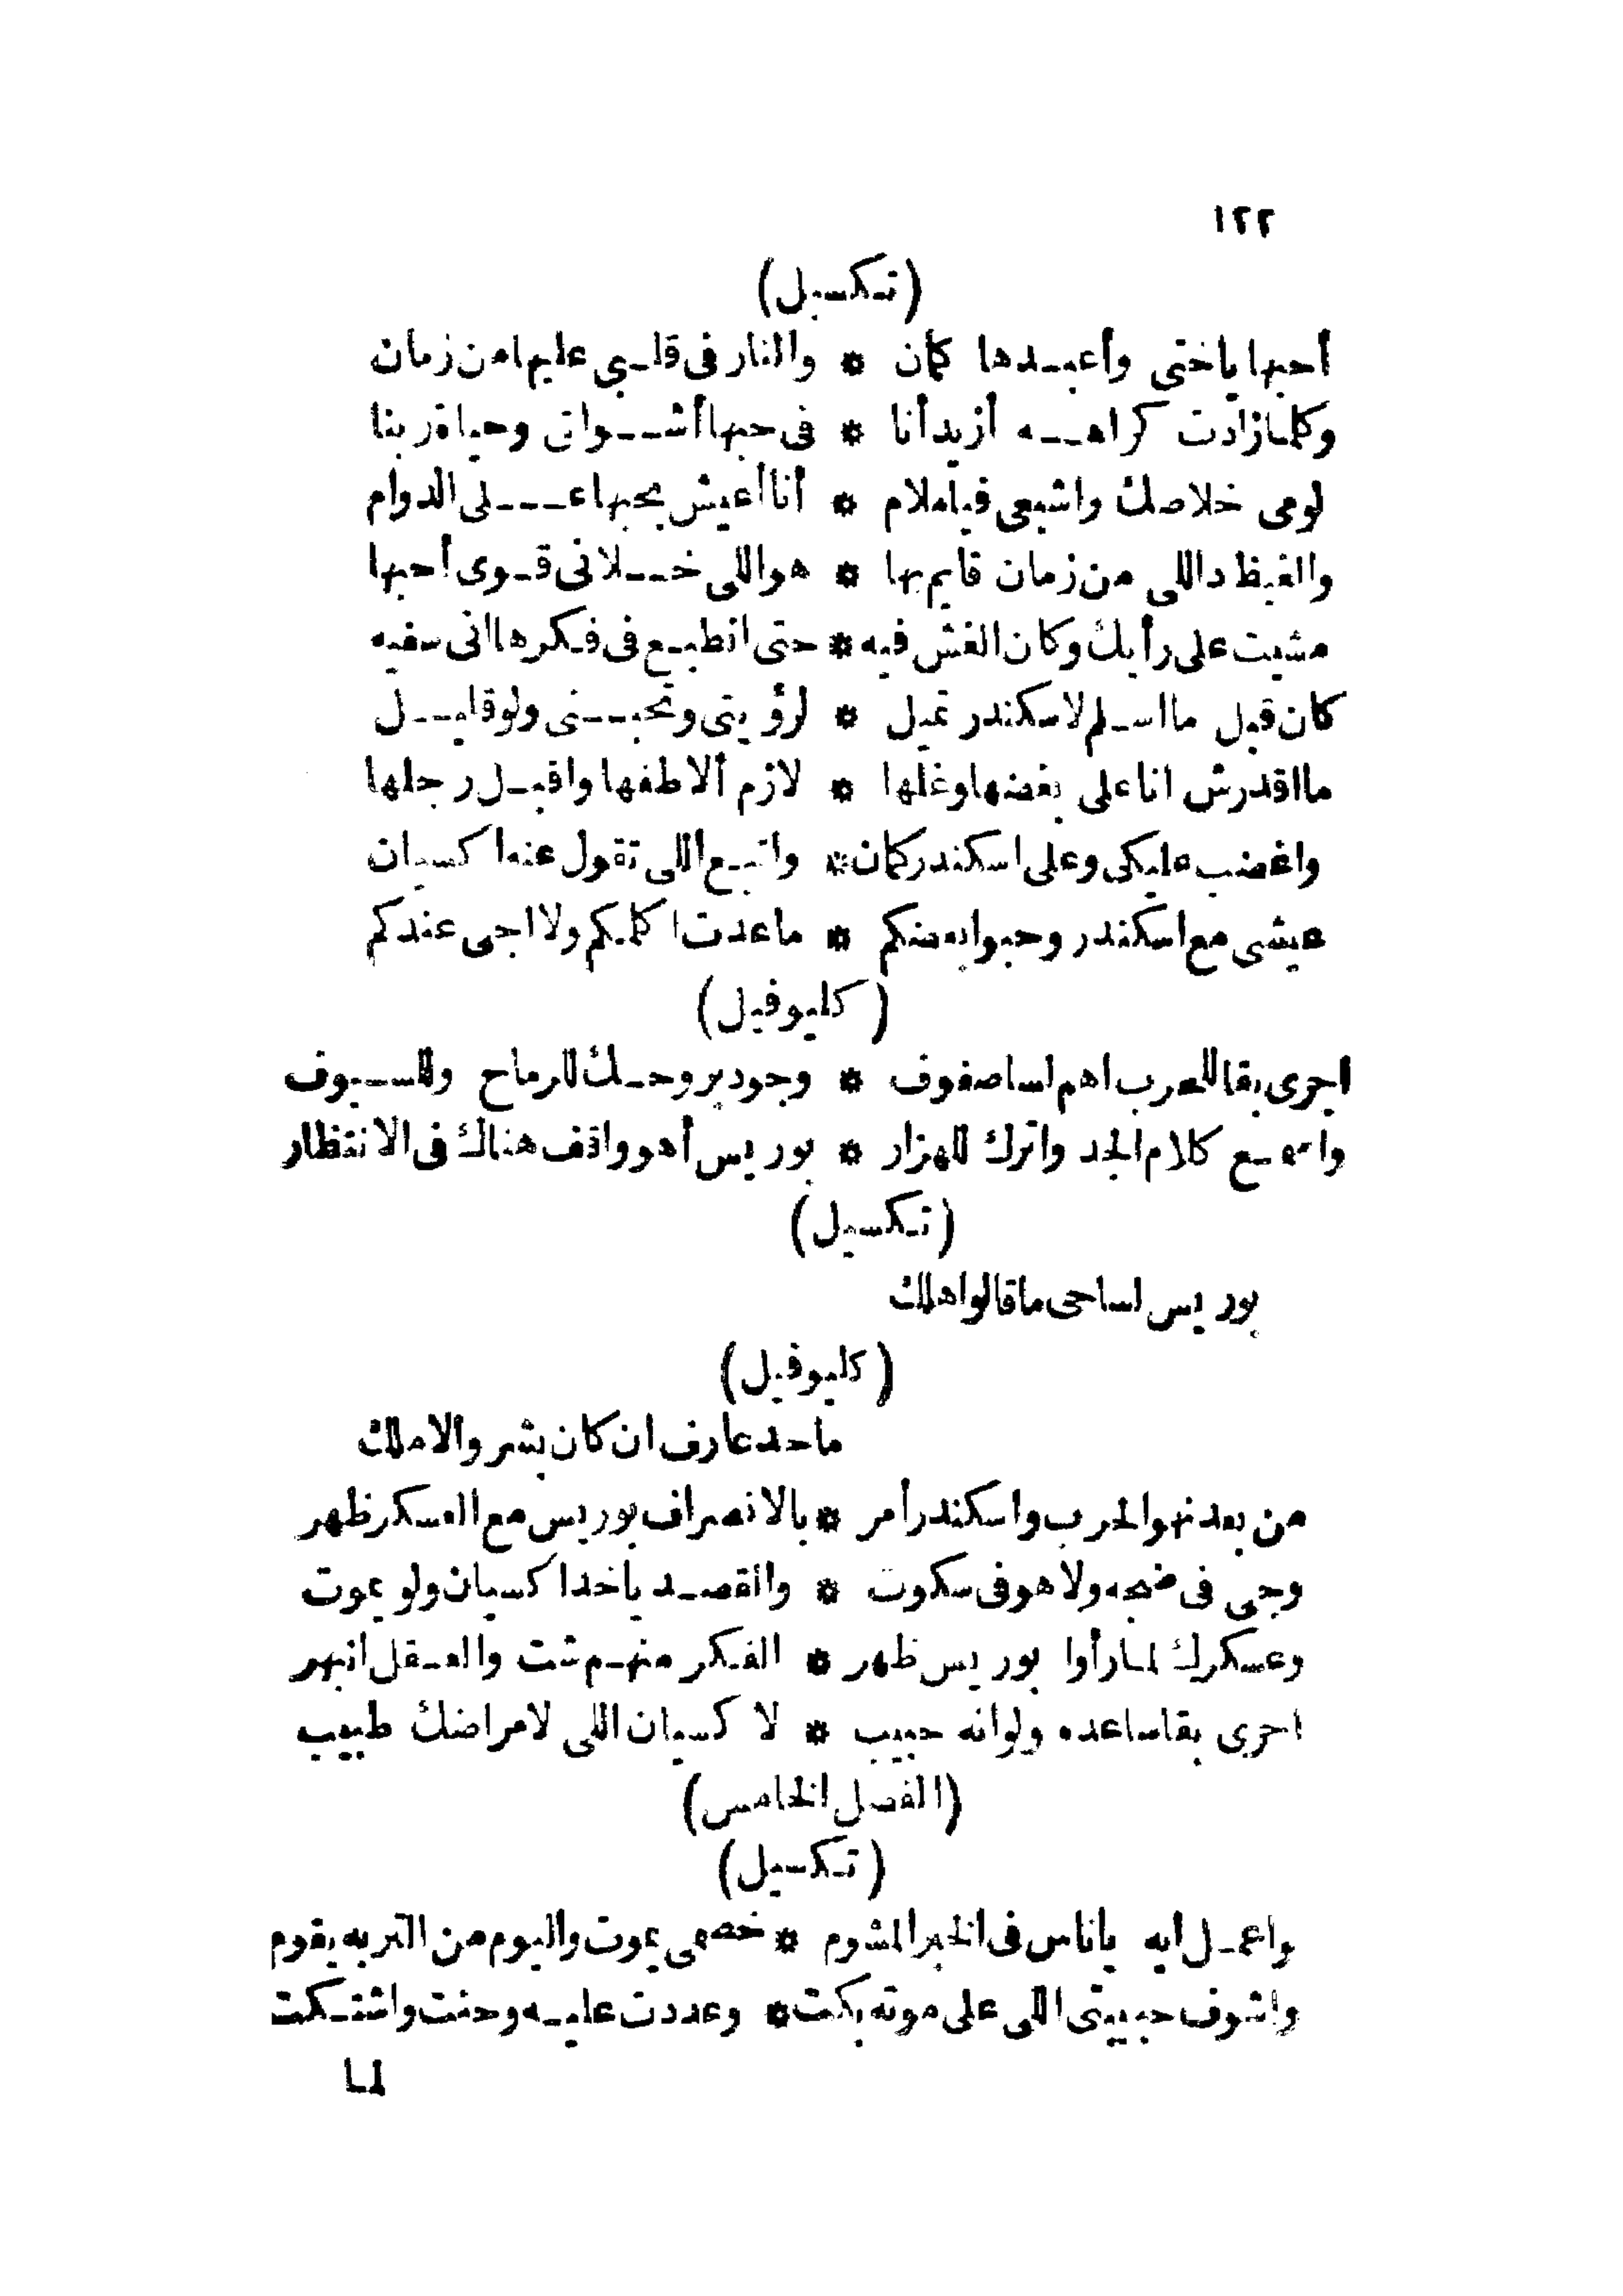 ١٢٢
(تكسيل)
أحبها ياختى وأعبدها كمان * والنار فى قلبي عليها من زمان
وكلمازادت كراهه أزيد أنا * فى حبها أشواقى وحياة ربنا
لومى خلاصك واشبعى فيا ملام * أنا أعيش بحبها على الدوام
والغيظ داللى من زمان قايم بها * هواللى خلانى قوى أحبها
مشيت على رأيك وكان الغش فيه * حتى انطبع فى فكرها انى سفيه
كان قبل ما اسلم لاسكندر تميل * لرؤيتى وتحبنى ولوقليل
ما اقدرش انا على بغضها وغلها * لازم ألاطفها واقبل رجلها
واغضب عليكى وعلى اسكندر كمان * واتبع اللى تقول عنه اكسيان
عيشى مع اسكندر وحبوا بعضكم * ما عدت اكلمكم ولا اجى عندكم
(كليوفيل)
اجرى بقا للحرب اهم لسا صفوف * وجود بروحك للرماح وللسيوف
واسمع كلام الجد واترك للهزار * بوريس أهو واقف هناك فى الانتظار
(تكسيل)
بوريس لسا حى ما قالوا هلك
(كليوفيل)
ماحد عارف ان كان بشر والا ملك
من بعد نهوالحرب واسكندر أمر * بالانصراف بوريس مع العسكر ظهر
وجى فى ضجه ولا هو فى سكوت * والقصد ياخد اكسيان ولو يموت
وعسكرك لمارأوا بوريس ظهر * الفكر منهم شت والعقل انبهر
اجرى بقا ساعده ولوانه حبيب * لا كسيان اللى لامراضك طبيب
(الفصل الخامس)
(تكسيل)
واعمل ايه ياناس فى الخبر المشوم * خصمى يموت واليوم من التربه يقوم
واشوف حبيبتى اللى على موته بكت * وعددت عليه وحنت واشتكت
لما